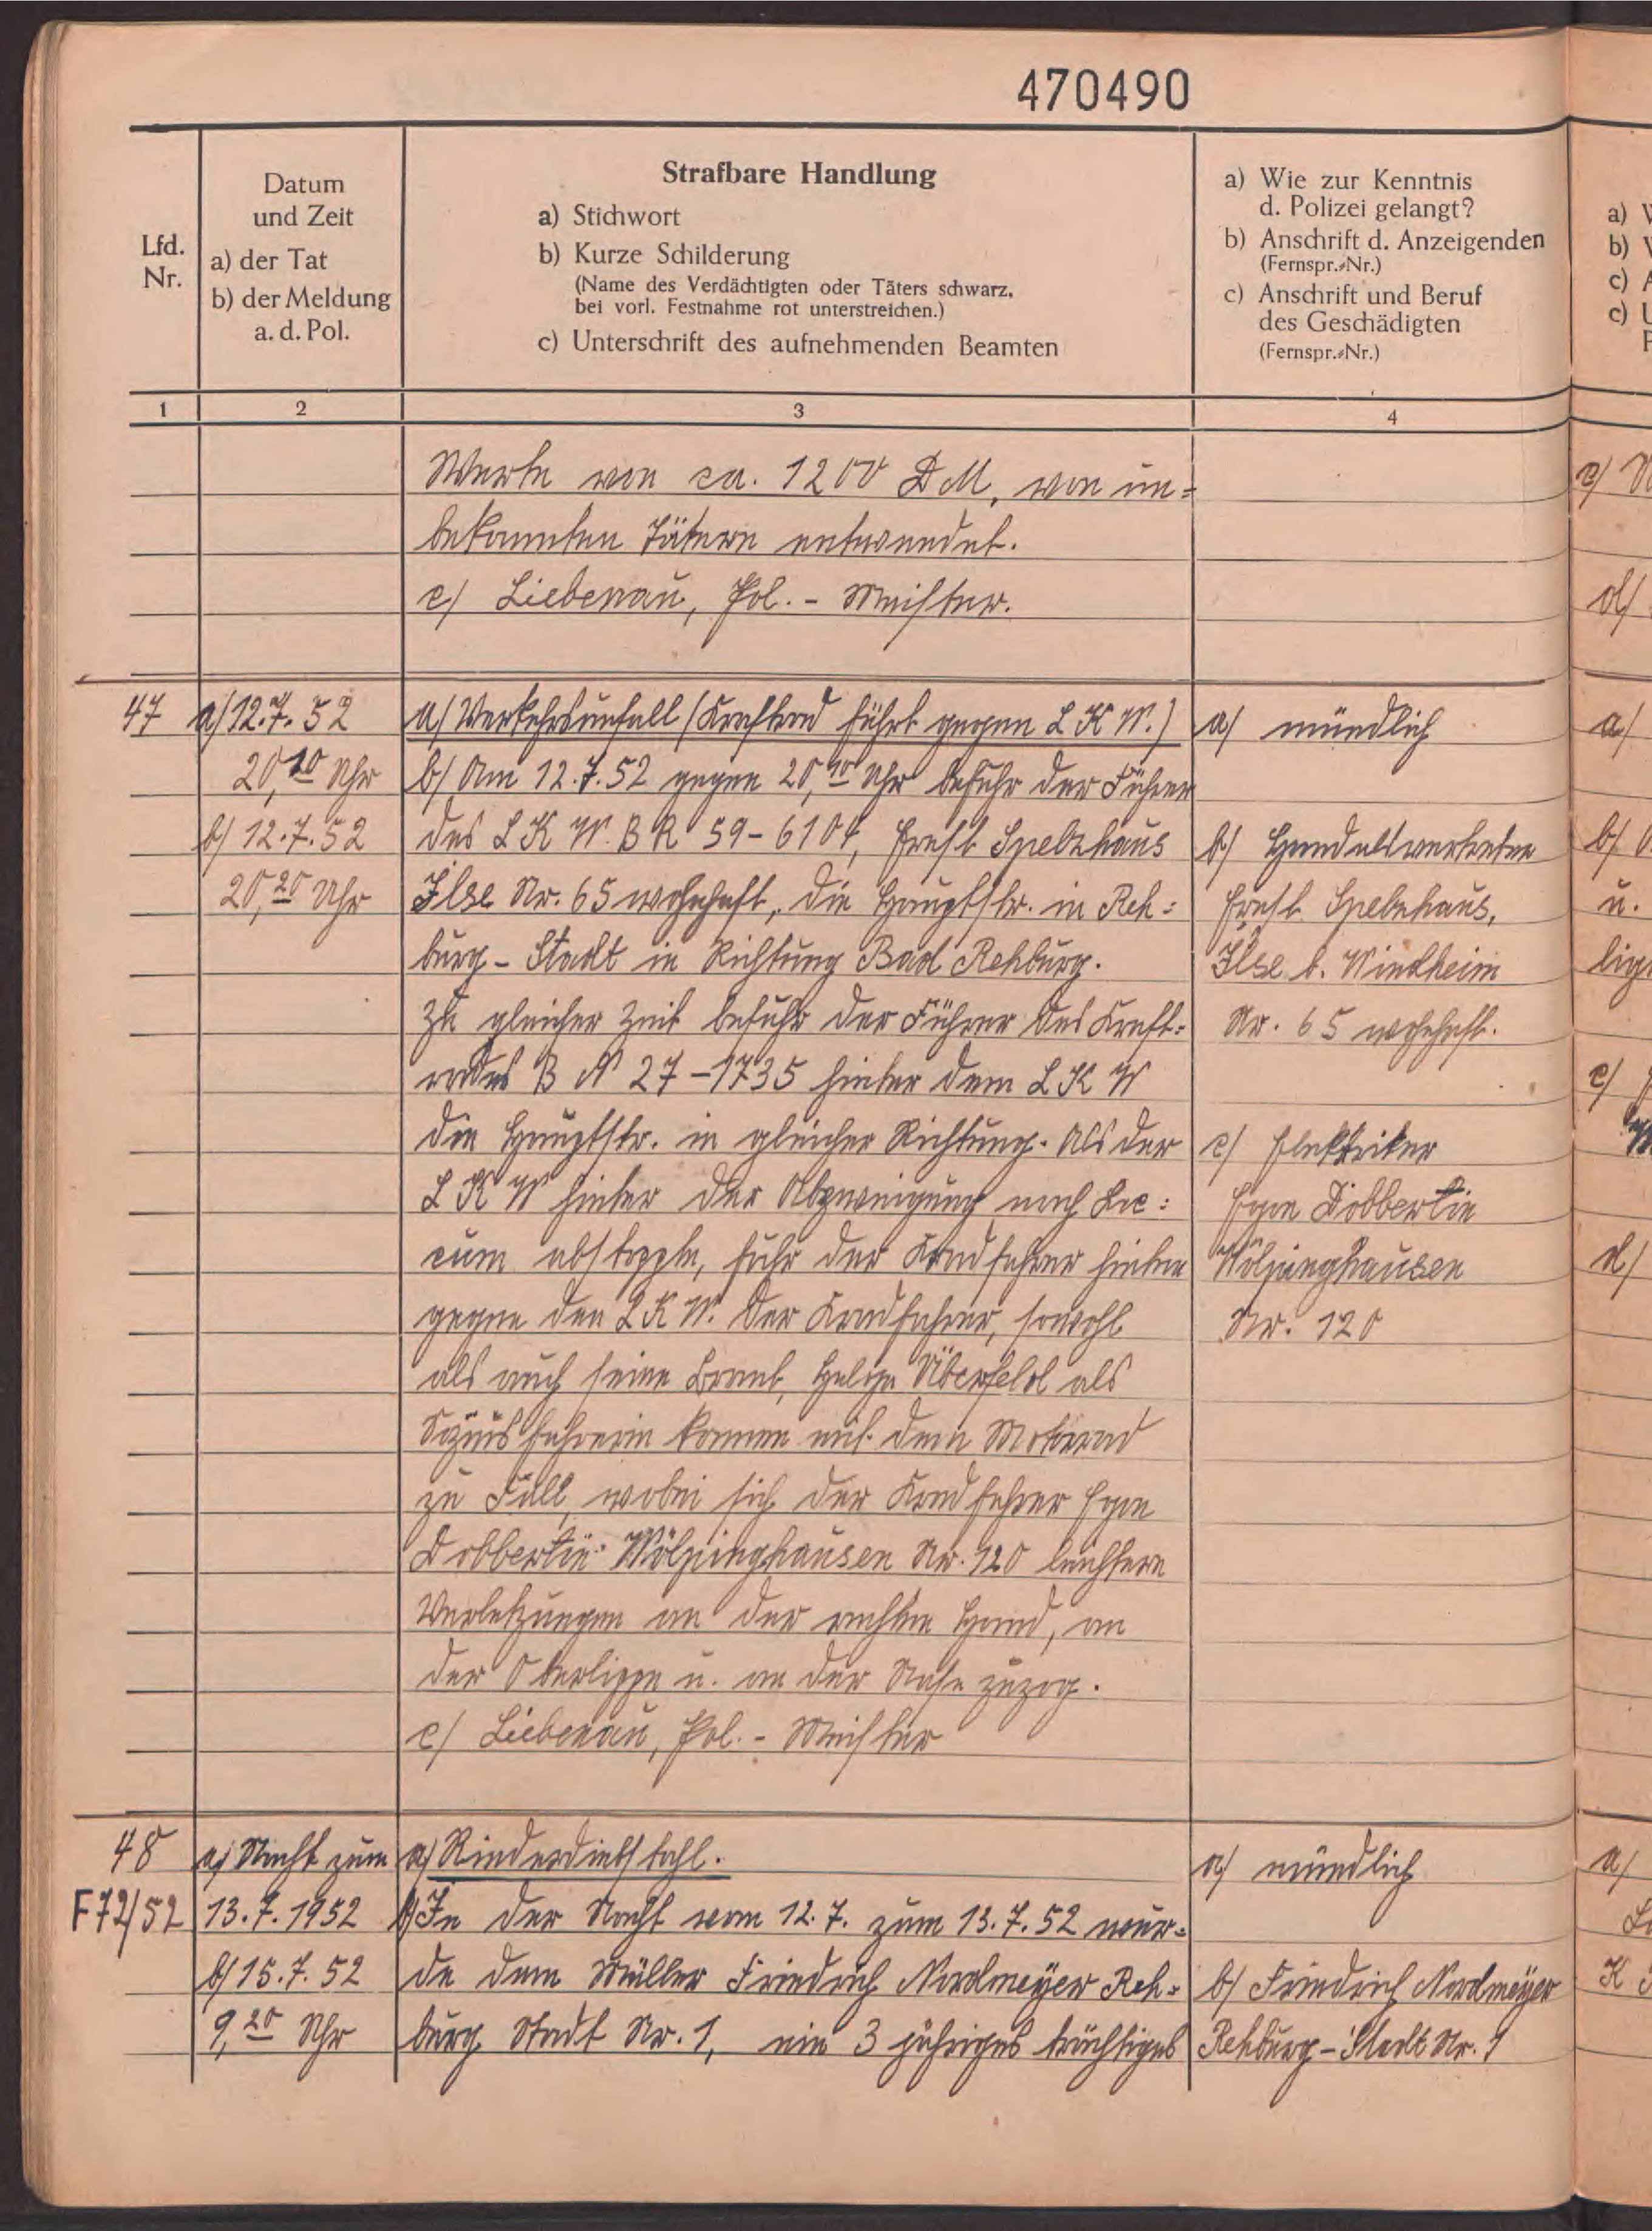 470490
Lfd.
Nr.
Datum
und Zeit
a) der Tat
b) der Meldung
a. d. Pol.
Strafbare Handlung
a) Stichwort
b) Kurze Schilderung
(Name des Verdächtigten oder Täters schwarz,
bei vorl. Festnahme rot unterstreichen.)
c) Unterschrift des aufnehmenden Beamten
a) Wie zur Kenntnis
d. Polizei gelangt?
b) Anschrift d. Anzeigenden
(Fernspr.-Nr.)
c) Anschrift und Beruf
des Geschädigten
(Fernspr.-Nr.)
1
2
3
4
Werte von ca. 1200 DM, von un=
bekannten Tätern entwendet.
c/ Liebenau, Pol. - Meister.
47
a/ 12.7.52
20,10 Uhr
b/ 12.7.52
20,20 Uhr
a/ Verkehrsunfall (Kraftrad fährt gegen LKW.)
b/ Am 12.7.52 gegen 20,10 Uhr befuhr der Führer
des LKW. BR 59-6104, Ernst Spelzhaus
Ilse Nr. 65 wohnhaft, die Hauptstr. in Reh=
burg - Stadt in Richtung Bad Rehburg.
Zu gleicher Zeit befuhr der Führer des Kraft=
rades BN 27-1735 hinter dem LKW
die Hauptstr. in gleicher Richtung. Als der
LKW hinter der Abzweigung nach Loc=
cum abstoppte, fuhr der Kradfahrer hinten
gegen den LKW. Der Kradfahrer, sowohl
als auch seine Braut, Helga Überfeld als
Soziusfahrerin kamen mit dem Motorrad
zu Fall, wobei sich der Kradfahrer Egon
Dobbertin Wölpinghausen Nr. 120 leichtere
Verletzungen an der rechten Hand, an
der Oberlippe u. an der Nase zuzog.
c/ Liebenau, Pol. - Meister
a/ mündlich
b/ Handelsvertreter
Ernst Spelzhaus,
Ilse b. Windheim
Nr. 65 wohnhaft.
c/ Elektriker
Egon Dobbertin
Wölpinghausen
Nr. 120
48
F72/52
a/ Nacht zum
13.7.1952
b/ 15.7.52
9,20 Uhr
a/ Rinderdiebstahl.
b/ In der Nacht vom 12.7. zum 13.7.52 wur=
de dem Müller Friedrich Nordmeyer Reh=
burg Stadt Nr. 1, ein 3 jähriges trächtiges
a/ mündlich
b/ Friedrich Nordmeyer
Rehburg-Stadt Nr. 1